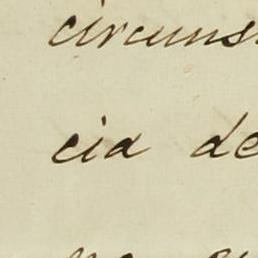 circuns
cia de